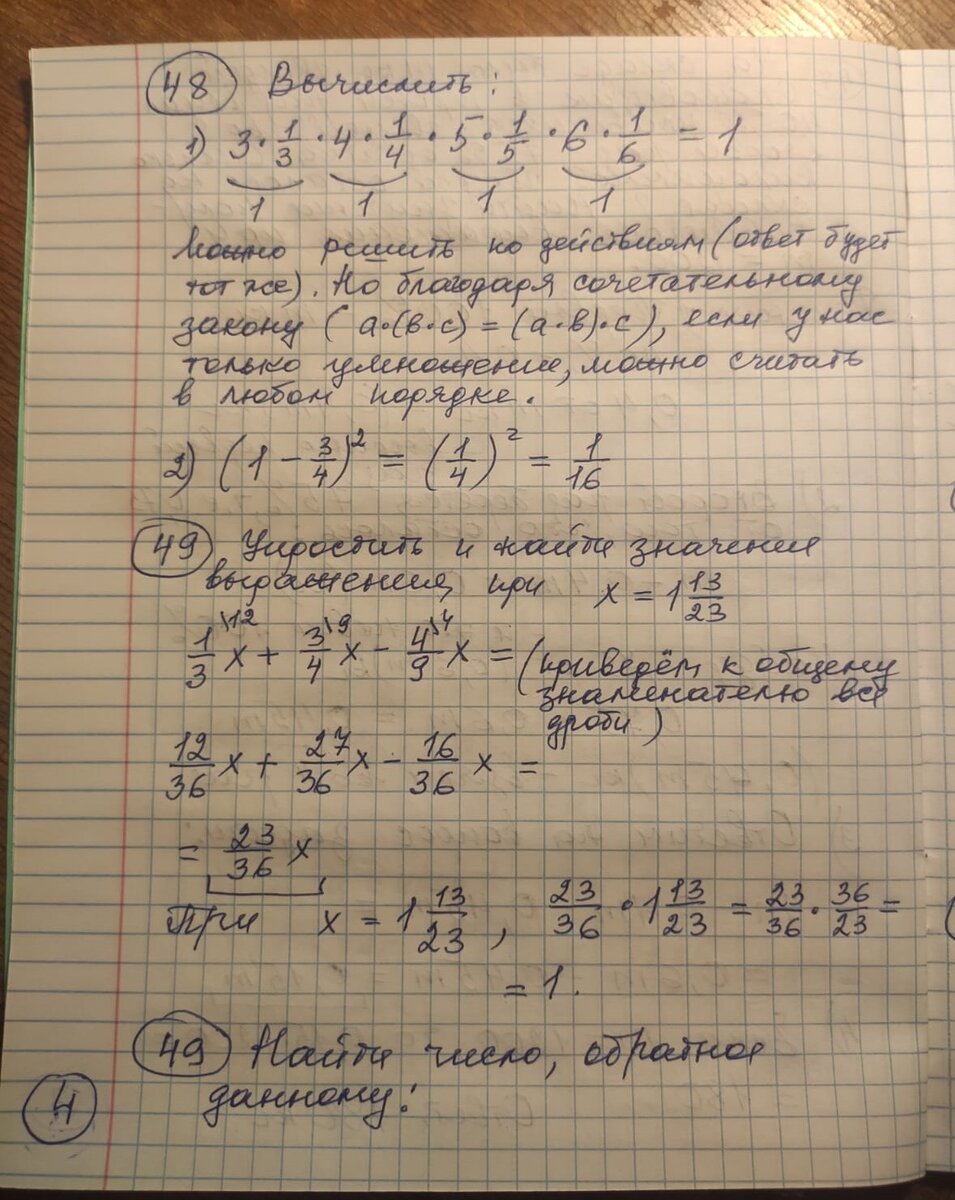 48 Вычислить:
1) 3 · 1/3 · 4 · 1/4 · 5 · 1/5 · 6 · 1/6 = 1
1 1 1 1
Можно решить по действиям (ответ будет
тот же). Но благодаря сочетательному
закону (a·(в·с) = (а·в)·с), если у нас
только умножение, можно считать
в любом порядке.
2) (1 - 3/4)² = (1/4)² = 1/16
49 Упростить и найти значение
выражения, при x = 1 13/23
1/3\12 x + 3/4\9 x - 4/9\4 x = (приведём к общему
знаменателю все
дроби)
12/36 x + 27/36 x - 16/36 x =
= 23/36 x
При x = 1 13/23, 23/36 · 1 13/23 = 23/36 · 36/23 =
= 1.
49 Найти число, обратное
данному:
4